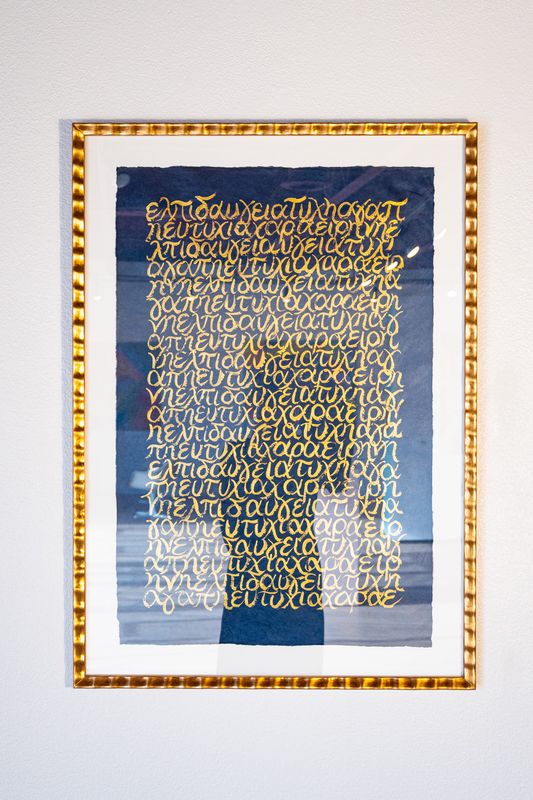 ελπιδαυγειατυχηαγαπ
ηευτυχιαχαραειρηνηε
λπιδαυγειαυγειατυχη
αγαπηευτυχιαχαραειρ
ηνηελπιδαυγειατυχηα
γαπηευτυχιαχαραειρη
νηελπιδαυγειατυχηαγ
απηευτυχιαχαραειρη
νηελπιδαυγειατυχηαγ
απηευτυχιαχαραειρη
νηελπιδαυγειατυχηαγ
απηευτυχιαχαραειρην
ηελπιδαυγειατυχηαγα
πηευτυχιαχαραειρηνη
ελπιδαυγειατυχηαγα
πηευτυχιαχαραειρη
νηελπιδαυγειατυχηα
γαπηευτυχιαχαραειρ
ηνηελπιδαυγειατυχηα
γαπηευτυχιαχαραειρ
ηνηελπιδαυγειατυχη
αγαπηευτυχιαχαραε